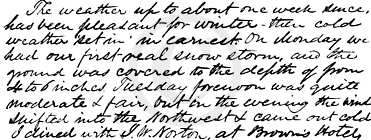 The weather up to about one week since,
has been pleasant for winter - then cold
weather set in in earnest. On Monday we
had our first real snow storm, and the
ground was covered to the depth of from
4 to 6 inches. Tuesday forenoon was quite
moderate & fair, but in the evening the wind
shifted into the Northwest & came out cold
I dined with J. W. Norton, at Brown's Hotel,